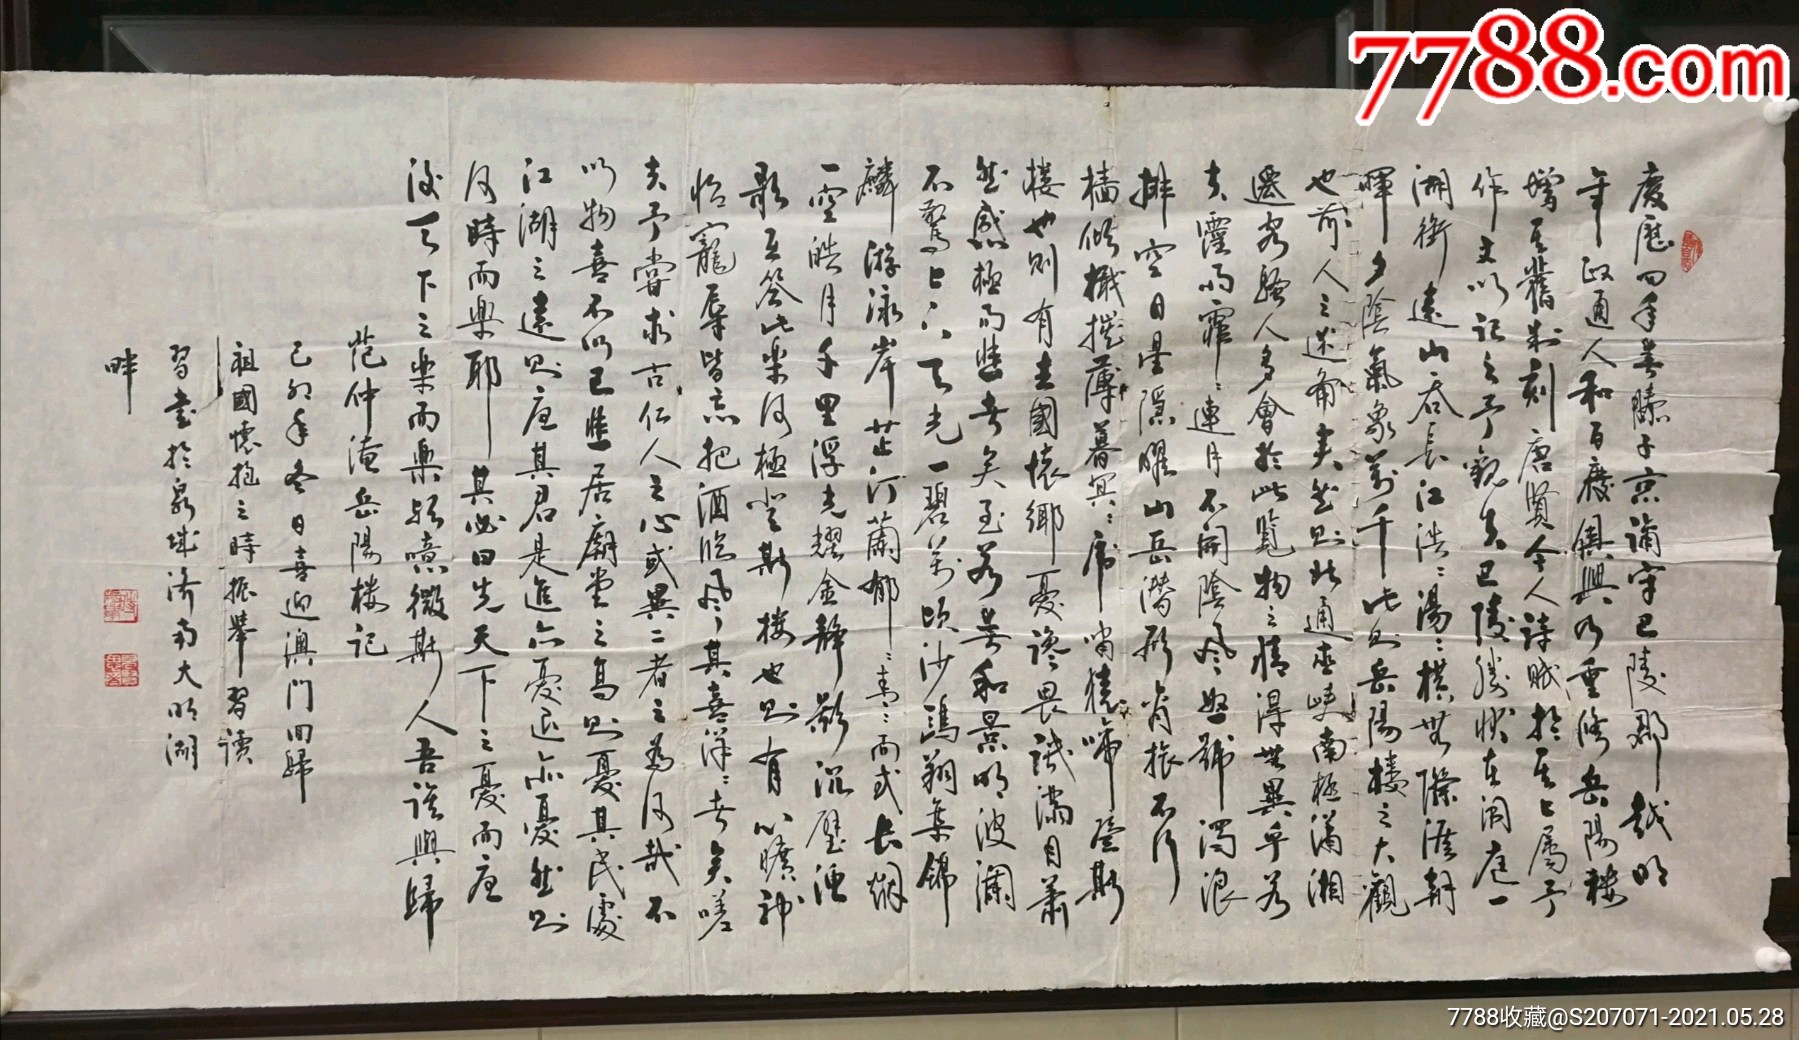 慶歷四年春滕子京謫守巴陵郡越明
年政通人和百廢俱興乃重修岳陽楼
增其舊制刻唐賢今人詩賦於其上屬予
作文以記之予觀夫巴陵勝狀在洞庭一
湖銜遠山吞長江浩浩湯湯橫無際涯朝
暉夕陰氣象萬千此則岳陽樓之大觀
也前人之述備矣然則北通巫峽南極瀟湘
遷客騷人多會於此覽物之情得無異乎若
夫霪雨霏霏連月不開陰風怒號濁浪
排空日星隱曜山岳潛形商旅不行
檣傾檝摧薄暮冥冥虎嘯猿啼登斯
楼也則有去國懷鄉憂讒畏譏滿目蕭
然感極而悲者矣至若春和景明波瀾
不驚上下天光一碧萬頃沙鷗翔集錦
鱗游泳岸芷汀蘭郁郁青青而或長烟
一空皓月千里浮光耀金靜影沉璧漁
歌互答此樂何極登斯楼也則有心曠神
怡寵辱皆忘把酒臨風其喜洋洋者矣嗟
夫予嘗求古仁人之心或異二者之為何哉不
以物喜不以己悲居廟堂之高則憂其民處
江湖之遠則憂其君是進亦憂退亦憂然則
何時而樂耶其必曰先天下之憂而憂
後天下之樂而樂歟噫微斯人吾誰與歸
范仲淹岳陽楼記
己卯年冬日喜迎澳門回歸
祖國懷抱之時振華習讀
習書於泉城濟南大明湖
畔
7788.com
7788收藏@S207071-2021.05.28